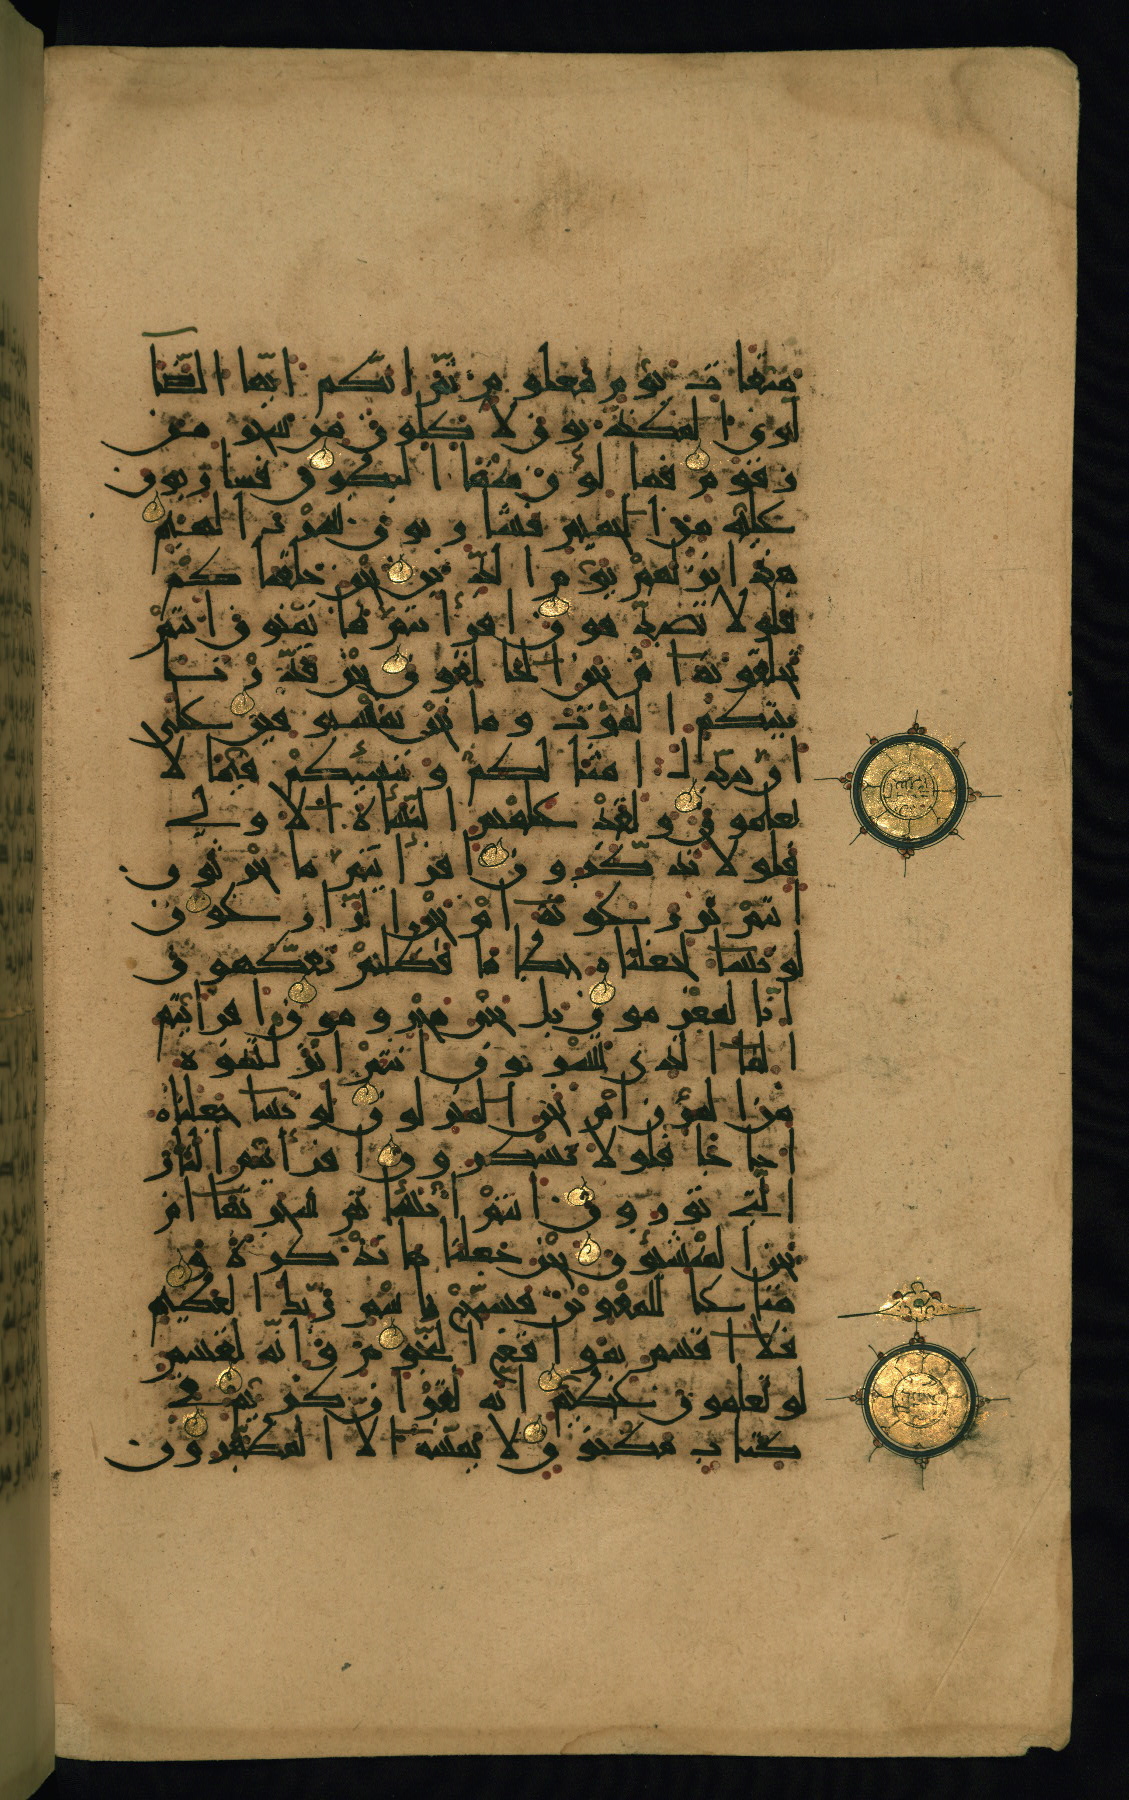 ميقات يوم معلوم ثم انكم ايها الضا
لون المكذبون لاكلون من شجر من
زقوم فمالؤن منها البطون فشاربون
عليه من الحميم فشاربون شرب الهيم
هذا نزلهم يوم الدين نحن خلقناكم
فلولا تصدقون افرأيتم ما تمنون اانتم
تخلقونه ام نحن الخالقون نحن قدرنا
بينكم الموت وما نحن بمسبوقين على
ان نبدل امثالكم وننشئكم فيما لا
تعلمون ولقد علمتم النشاة الاولى
فلولا تذكرون افرأيتم ما تحرثون
اانتم تزرعونه ام نحن الزارعون
لو نشاء لجعلناه حطاما فظلتم تفكهون
انا لمغرمون بل نحن محرومون افرأيتم
الماء الذي تشربون اانتم انزلتموه
من المزن ام نحن المنزلون لو نشاء جعلناه
اجاجا فلولا تشكرون افرأيتم النار
التي تورون اانتم انشأتم شجرتها ام
نحن المنشئون نحن جعلناها تذكرة و
متاعا للمقوين فسبح باسم ربك العظيم
فلا اقسم بمواقع النجوم وانه لقسم
لو تعلمون عظيم انه لقران كريم في
كتاب مكنون لا يمسه الا المطهرون